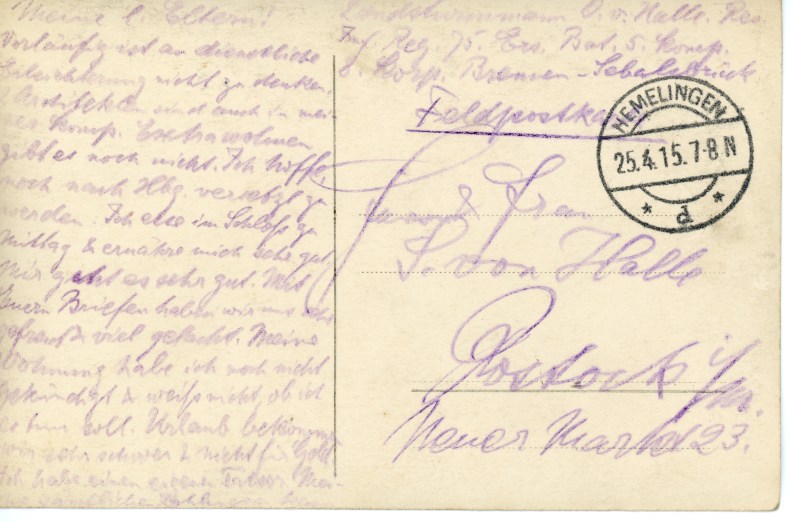 Meine l. Eltern!
Vorläufig ist an dienstliche
Erleichterung nicht zu denken.
Architekten sind auch in mei-
ner Komp. Extrawohnen
gibt es noch nicht. Ich hoffe
noch nach Hbg. versetzt zu
werden. Ich esse im Schloß zu
Mittag & ernähre mich sehr gut
Mir geht es sehr gut. Mit
Euern Briefen haben wir uns sehr
gefreut & viel gelacht. Meine
Wohnung habe ich noch nicht
gekündigt & weiß nicht, ob ich
es tun soll. Urlaub bekommen
wir sehr schwer & nicht für Geld
Ich habe einen eigenen Mei-
ne
Landsturmmann O. v. Halle. Res.
Inf. Reg. 75. Ers. Bat. 5. Komp.
Korp. Bremen - Sebaldsbrück
Feldpostkarte
HEMELINGEN
25.4.15.7-8 N
* d *
Herrn & Frau
S. von Halle
Rostock i/M.
Neuer Markt 23.